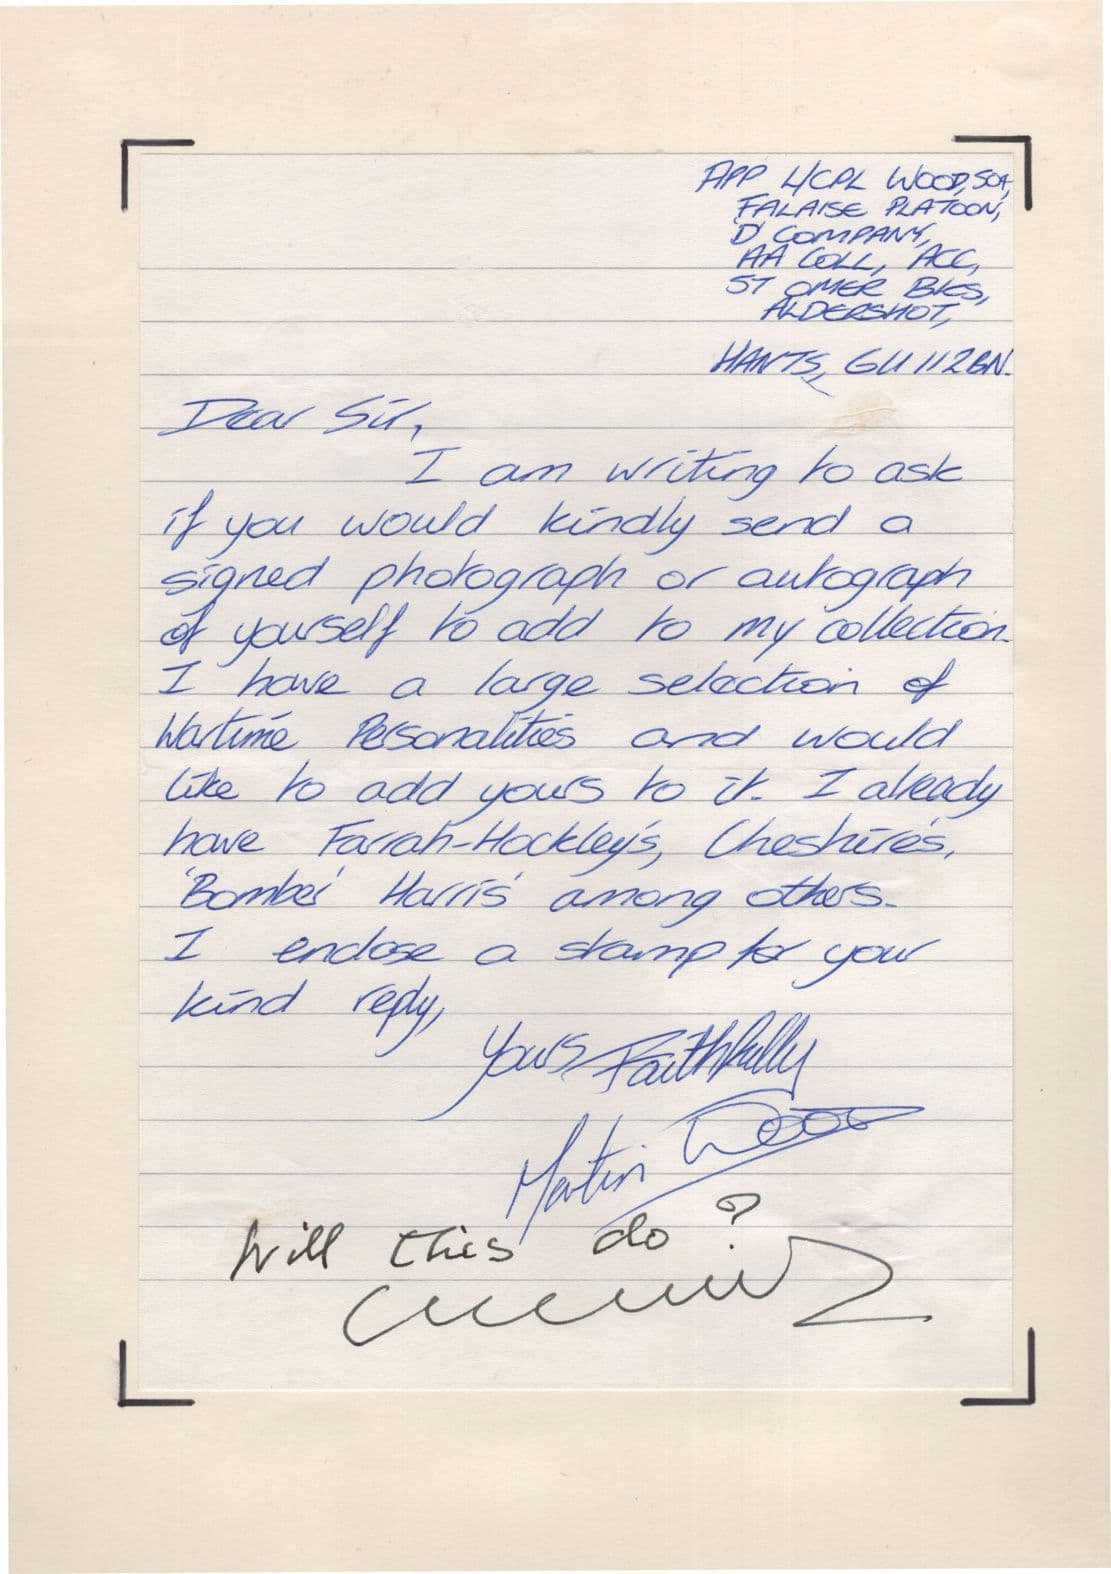 APP L/CPL WOOD, SOA,
FALAISE PLATOON,
'D' COMPANY,
AA COLL, ACC,
ST OMER BKS,
ALDERSHOT,
HANTS, GU11 2BN.
Dear Sir,
I am writing to ask
if you would kindly send a
signed photograph or autograph
of yourself to add to my collection.
I have a large selection of
Wartime Personalities and would
like to add yours to it. I already
have Farrah-Hockley's, Cheshire's,
'Bomber' Harris' among others.
I enclose a stamp for your
kind reply,
Yours Faithfully
Martin Wood
Will this do?